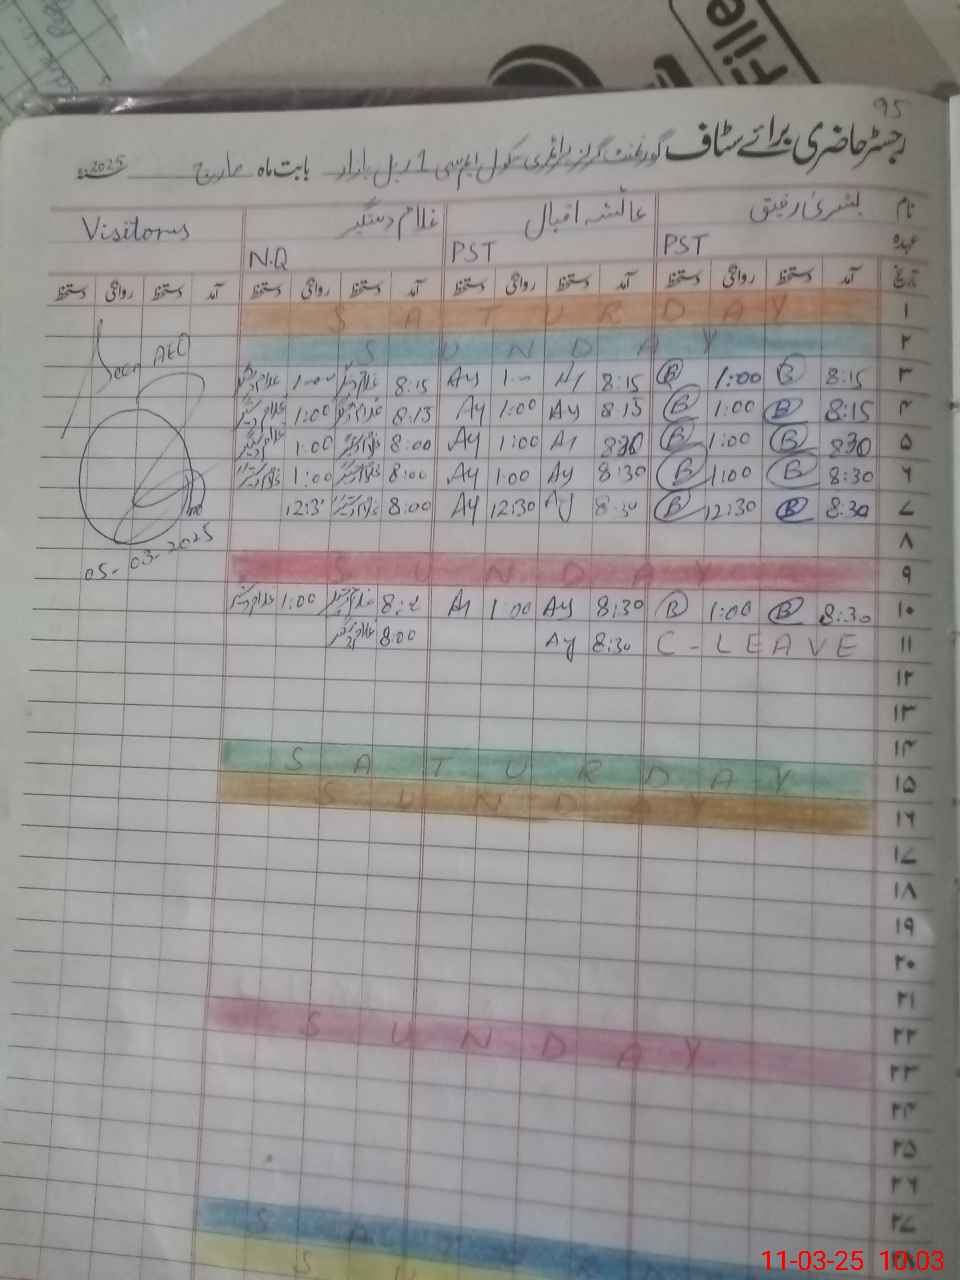 File
95
رجسٹر حاضری برائے سٹاف گورنمنٹ گرلز پرائمری سکول ایم سی 1 ریل بازار بابت ماہ مارچ 2025ء
نام بشریٰ رفیق عائشہ اقبال غلام دستگیر Visitorus
عہدہ PST PST N.Q
تاریخ آمد دستخط روانگی دستخط آمد دستخط روانگی دستخط آمد دستخط روانگی دستخط آمد دستخط روانگی دستخط
۱ SATURDAY
۲ SUNDAY
۳ 8:15 B 1:00 B 8:15 Ay 1:00 Ay 8:15 غلام دستگیر 1:00 غلام دستگیر
۴ 8:15 B 1:00 B 8:15 Ay 1:00 Ay 8:15 غلام دستگیر 1:00 غلام دستگیر
۵ 830 B 1:00 B 830 Ay 1:00 Ay 8:00 غلام دستگیر 1:00 غلام دستگیر
۶ 8:30 B 1:00 B 8:30 Ay 1:00 Ay 8:00 غلام دستگیر 1:00 غلام دستگیر
۷ 8:30 B 12:30 B 8:30 Ay 12:30 Ay 8:00 غلام دستگیر 12:3
۸
۹ SUNDAY
۱۰ 8:30 B 1:00 B 8:30 Ay 1:00 Ay غلام دستگیر 1:00 غلام دستگیر
۱۱ C-LEAVE 8:30 Ay 8:00 غلام دستگیر
۱۲
۱۳
۱۴
۱۵ SATURDAY
۱۶ SUNDAY
۱۷
۱۸
۱۹
۲۰
۲۱
۲۲
۲۳ SUNDAY
۲۴
۲۵
۲۶
۲۷
۲۸
Seen
AEO
05-03-2025
11-03-25 10:03